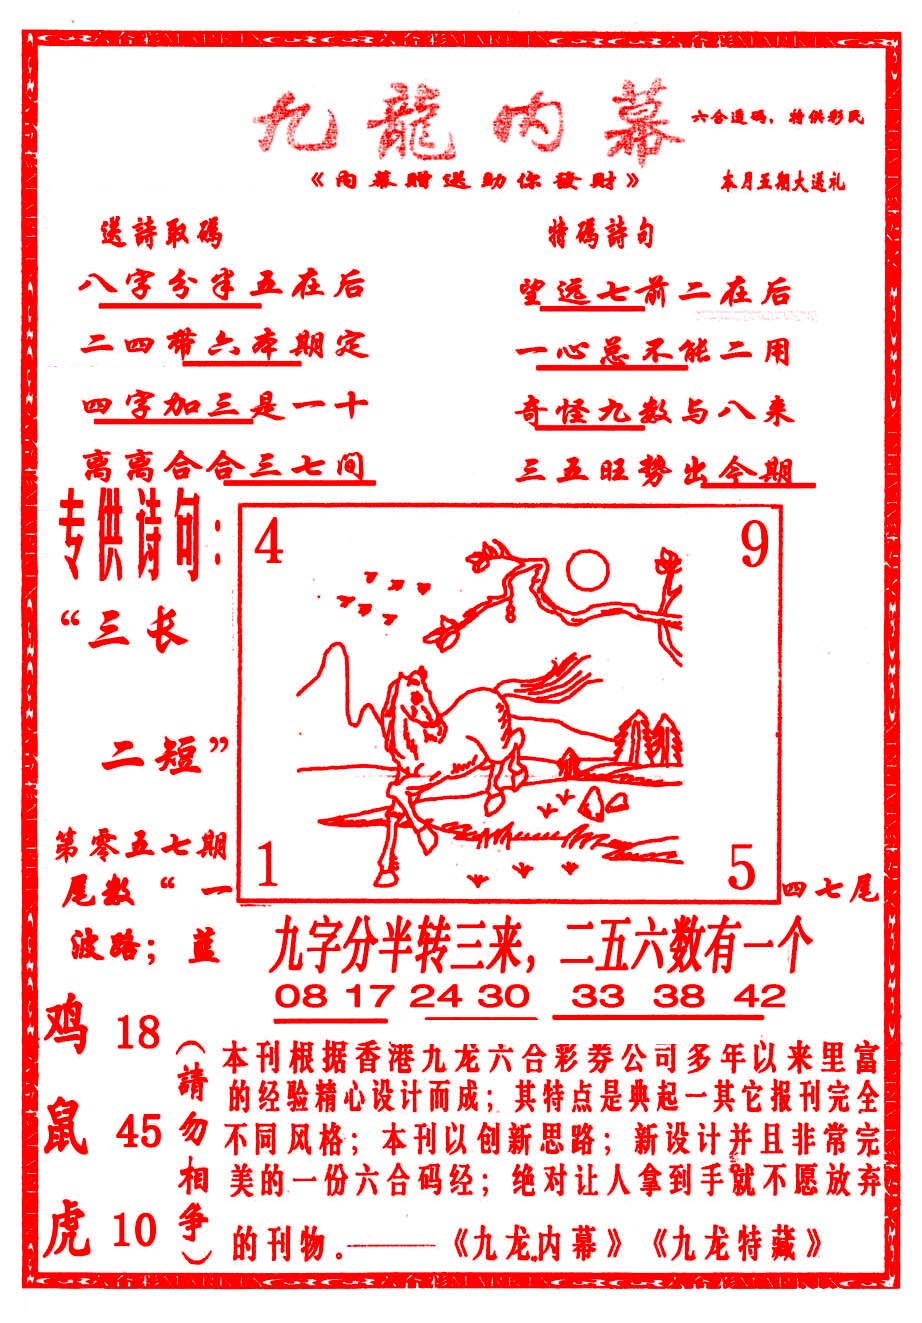 九龍内幕
六合透码，特供彩民
《内幕赠送助你發財》
本月五期大送礼
送詩取碼
八字分半五在后
二四带六本期定
四字加三是一十
离离合合三七间
特碼詩句
望远七前二在后
一心总不能二用
奇怪九数与八来
三五旺势出今期
专供诗句：
“三长
二短”
第零五七期
尾数“一
四七尾
波路；蓝
4
9
1
5
九字分半转三来，二五六数有一个
08 17 24 30 33 38 42
鸡 18
鼠 45
虎 10
（請勿相争）
本刊根据香港九龙六合彩券公司多年以来里富
的经验精心设计而成；其特点是典起一其它报刊完全
不同风格；本刊以创新思路；新设计并且非常完
美的一份六合码经；绝对让人拿到手就不愿放弃
的刊物。——《九龙内幕》《九龙特藏》